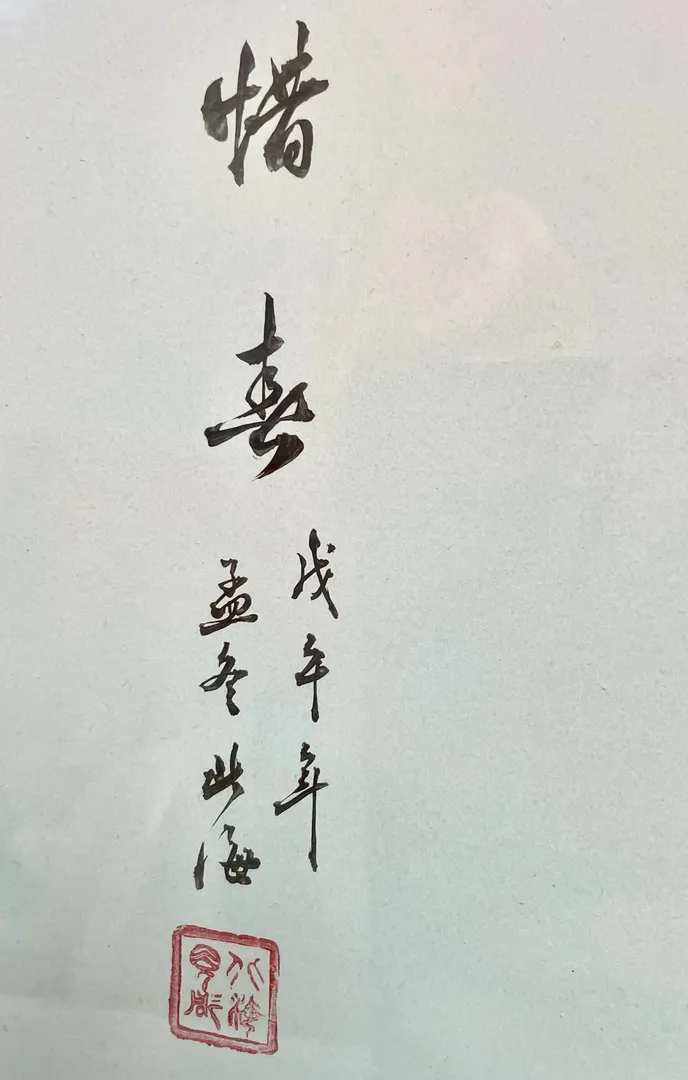 惜春
戊午年
孟冬北海